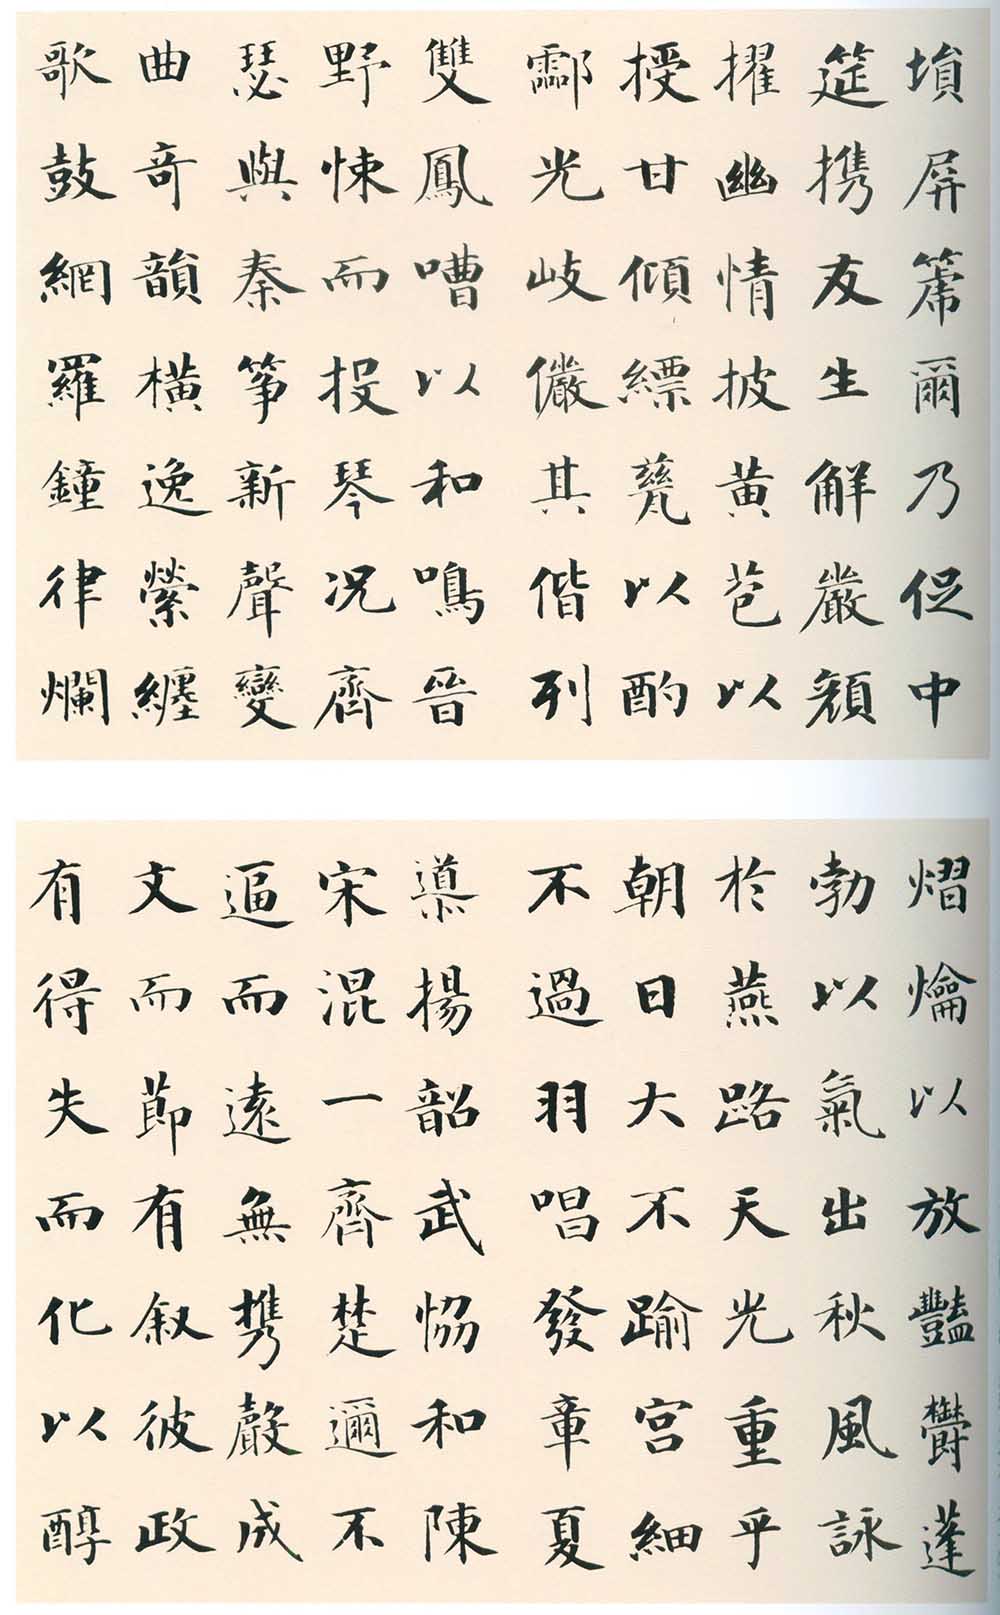 塤屏篪爾乃促中
筵携友生解嚴顏
擢幽情披黃苞以
授甘傾縹甆以酌
酃光岐儼其偕列
雙鳳嘈以和鳴晉
野悚而投琴况齊
瑟與秦筝新聲變
曲奇韻橫逸縈纏
歌鼓網羅鐘律爛
熠爚以放豔欝蓬
勃以氣出秋風詠
於燕路天光重乎
朝日大不踰宮細
不過羽唱發章夏
導揚韶武協和陳
宋混一齊楚邇不
逼而遠無携聲成
文而節有叙彼政
有得失而化以醇